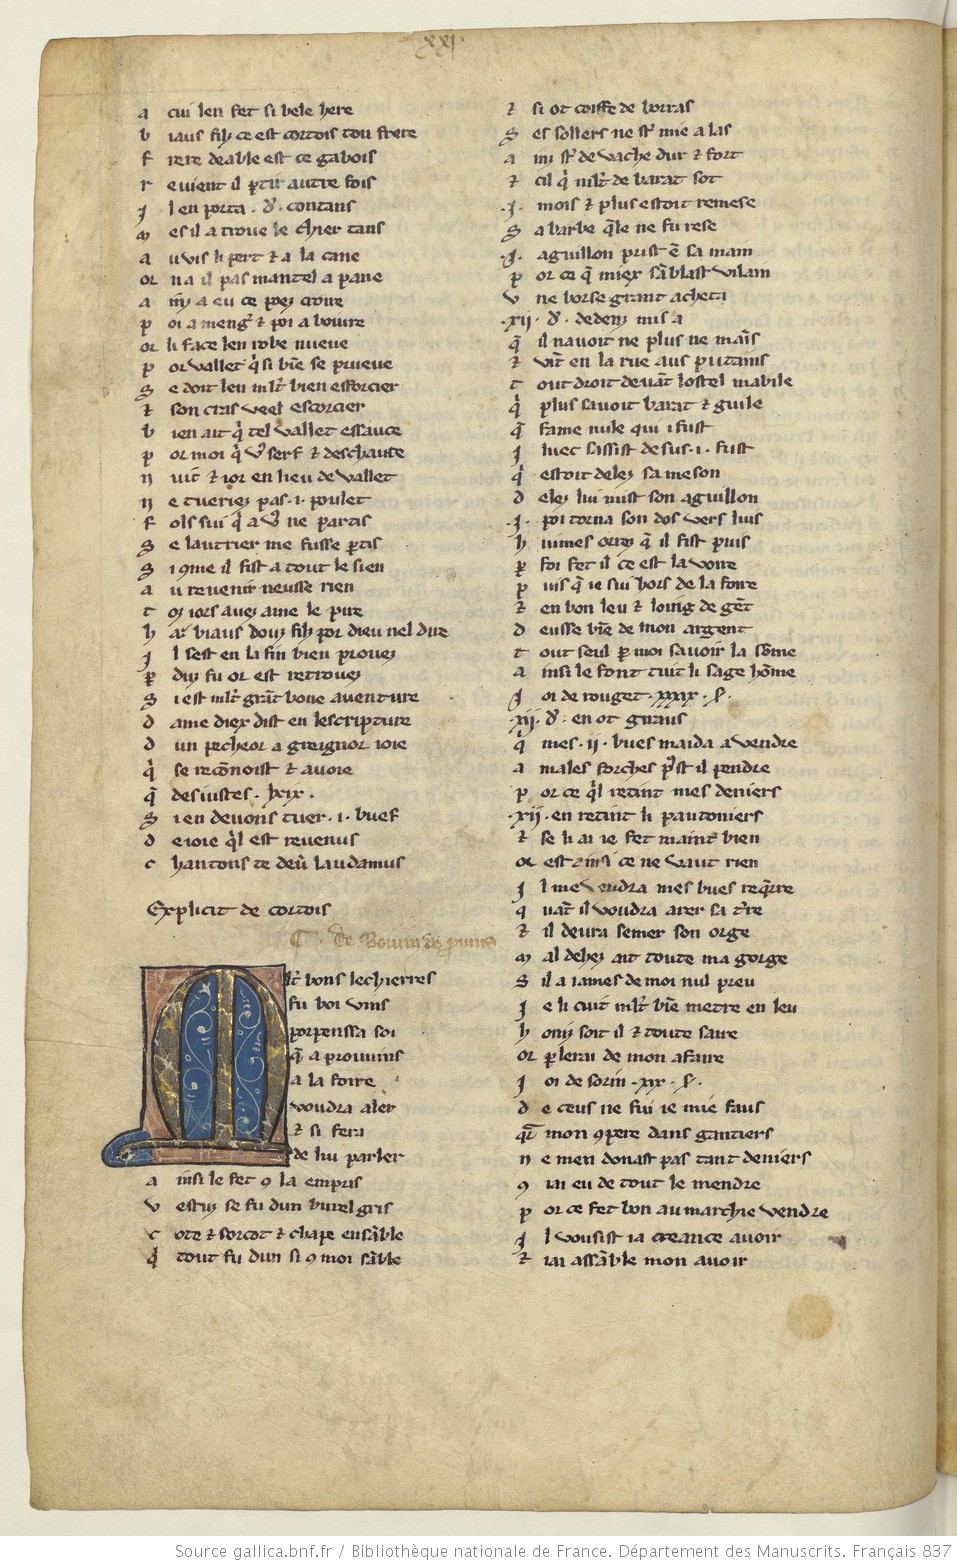 xxj
A cui len fet si bele here
B iaus filz ce est cortois ton frere
F rere deable est ce gabois
R evient il ꝑtir autre fois
J l en porta . d̾ . contans
M es il a trove le chier tans
A u vis li pert ⁊ a la cane
Or na il pas mantel a pane
A inz a eu ce poez croire
P oi a mengͥe ⁊ poi a boivre
Or li face len robe nueve
P or vallet qͥ si bn̄e se prueve
S e doit len ml̾t bien esforcier
⁊ son cras veel escorcier
B ien ait qͥ tel vallet essauce
P or moi qͥ v̾ serf ⁊ deschauce
N uit ⁊ ior en lieu de vallet
N e tueriez pas .i. poulet
F ols sui qͥ a v̾ ne partis
S e lautrier me fusse ꝑtis
S i ꝯme il fist a tout le sien
A u revenir neusse rien
T oz iors avez ame le pire
H a biaus douz filz por dieu nel dire
J l sest en la fin bien provez
P diz fu or est retrovez
S i est ml̾t grāt bone aventure
D ame diex dist en lescripture
D un pecheor a greignor ioie
Qͥ se recōnoist ⁊ avoie
Q̄ des iustes . lxix .
S i en devons tuer .i. buef
D e ioie qͥl est revenus
C hantons te deū laudamus
Explicit de cortois
C. de Boivin de provins
Ml̾t bons lechierres
fu boivins
porpenssa soi
q̄ a provvins
a la foire
voudra aler
⁊ si fera
de lui parler
A insi le fet ꝯ la empris
V estuz se fu dun burel gris
C ote ⁊ sorcot ⁊ chape ensāble
Qͥ tout fu dun si ꝯ moi sāble
⁊ si ot coiffe de borras
S es sollers ne st̾ mie a las
A inz st̾ de vache dur ⁊ fort
⁊ cil qͥ ml̾t de barat sot
.J. mois ⁊ plus estoit remese
S a barbe q̄le ne fu rese
.J. aguillon prist ē sa main
P or ce q̄ miex sāblast vilain
V ne borse grant acheta
.xij. d̾. dedenz mis a
Q̄ il navoit ne plus ne mains
⁊ vīt en la rue aus putains
T out droit devāt lostel mabile
Qͥ plus savoit barat ⁊ guile
Q̄ fame nule qui i fust
J luec sassist desus .i. fust
Qͥ estoit delez sa meson
D elez lui mist son aguillon
.J. poi torna son dos vers luis
H uimes orrez q̄ il fist puis
P foi fet il ce est la voire
P uis q̄ ie sui hors de la foire
⁊ en bon leu ⁊ loing de gēt
D eusse bn̄e de mon argent
T out seul ꝑ moi savoir la sōme
A insi le font tuit li sage hōme
J oi de rouget .xxxix. s̶.
.xij. d̾. en ot giraus
Qͥ mes .ii. bues maida a vendre
A males forches pͥst il pendre
P or ce qͥl retint mes deniers
.xii. en retint li pautoniers
⁊ se li ai ie fet maint bien
Or est einsi ce ne vaut rien
J l me vendra mes bues reqͥrre
Q uāt il voudra arer sa t̾re
⁊ il devra semer son orge
M al dehez ait toute ma gorge
S il a iames de moi nul preu
J e li cuit ml̾t bn̄e metre en leu
H oniz soit il ⁊ toute saire
Or ꝑlerai de mon afaire
J oi de sorin .xix. s̶.
D e ceus ne fui ie mie faus
Qr̄ mon ꝯpere dans gautiers
N e men donast pas tant deniers
ꝯ iai eu de tout le mendre
P or ce fet bon au marchie vendre
J l vousist ia creance avoir
⁊ iai assāble mon avoir
Source gallica.bnf.fr / Bibliothèque nationale de France. Département des Manuscrits. Français 837